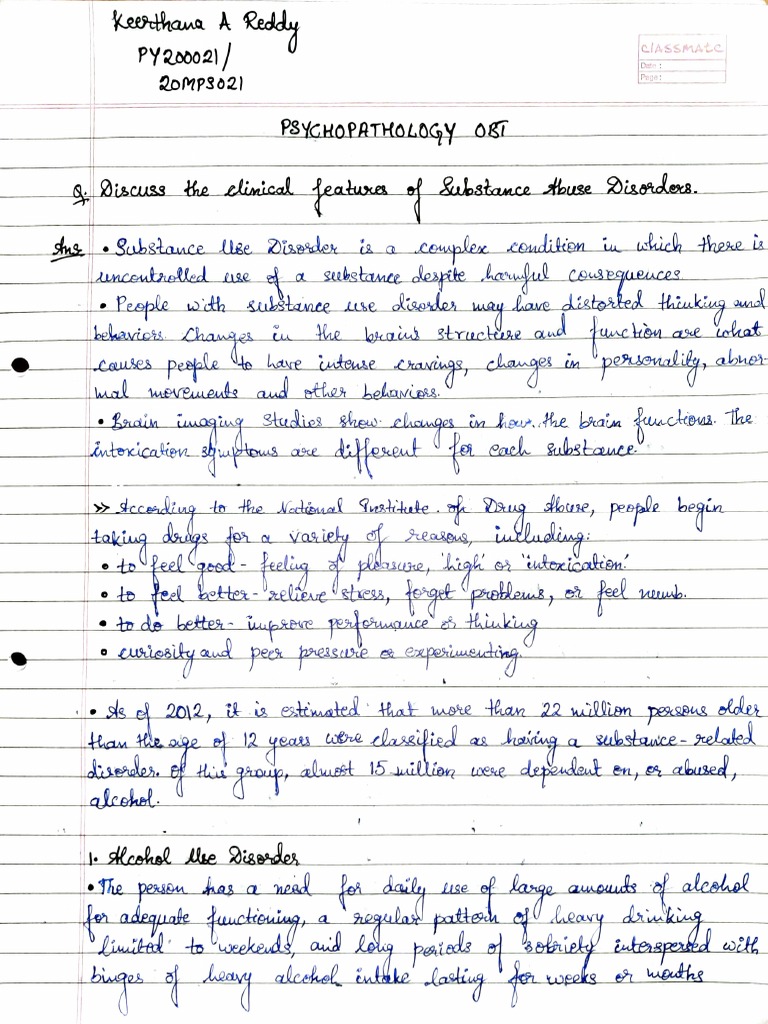 Keerthana A Reddy
PY200021/
20MPS021
CLASSMATE
Date :
Page :
PSYCHOPATHOLOGY OBT
Q. Discuss the clinical features of Substance Abuse Disorders.
Ans • Substance Use Disorder is a complex condition in which there is
uncontrolled use of a substance despite harmful consequences
• People with substance use disorder may have distorted thinking and
behaviors. Changes in the brains structure and function are what
causes people to have intense cravings, changes in personality, abnor-
mal movements and other behaviors.
• Brain imaging studies show changes in how the brain functions. The
intoxication symptoms are different for each substance.
>> According to the National Institute of Drug Abuse, people begin
taking drugs for a variety of reasons, including:
• to feel good - feeling of pleasure, 'high' or 'intoxication'.
• to feel better - relieve stress, forget problems, or feel numb.
• to do better - improve performance or thinking
• curiosity and peer pressure or experimenting.
• As of 2012, it is estimated that more than 22 million persons older
than the age of 12 years were classified as having a substance-related
disorder. Of this group, almost 15 million were dependent on, or abused,
alcohol.
1. Alcohol Use Disorder
• The person has a need for daily use of large amounts of alcohol
for adequate functioning, a regular pattern of heavy drinking
limited to weekends, and long periods of sobriety interspersed with
binges of heavy alcohol intake lasting for weeks or months